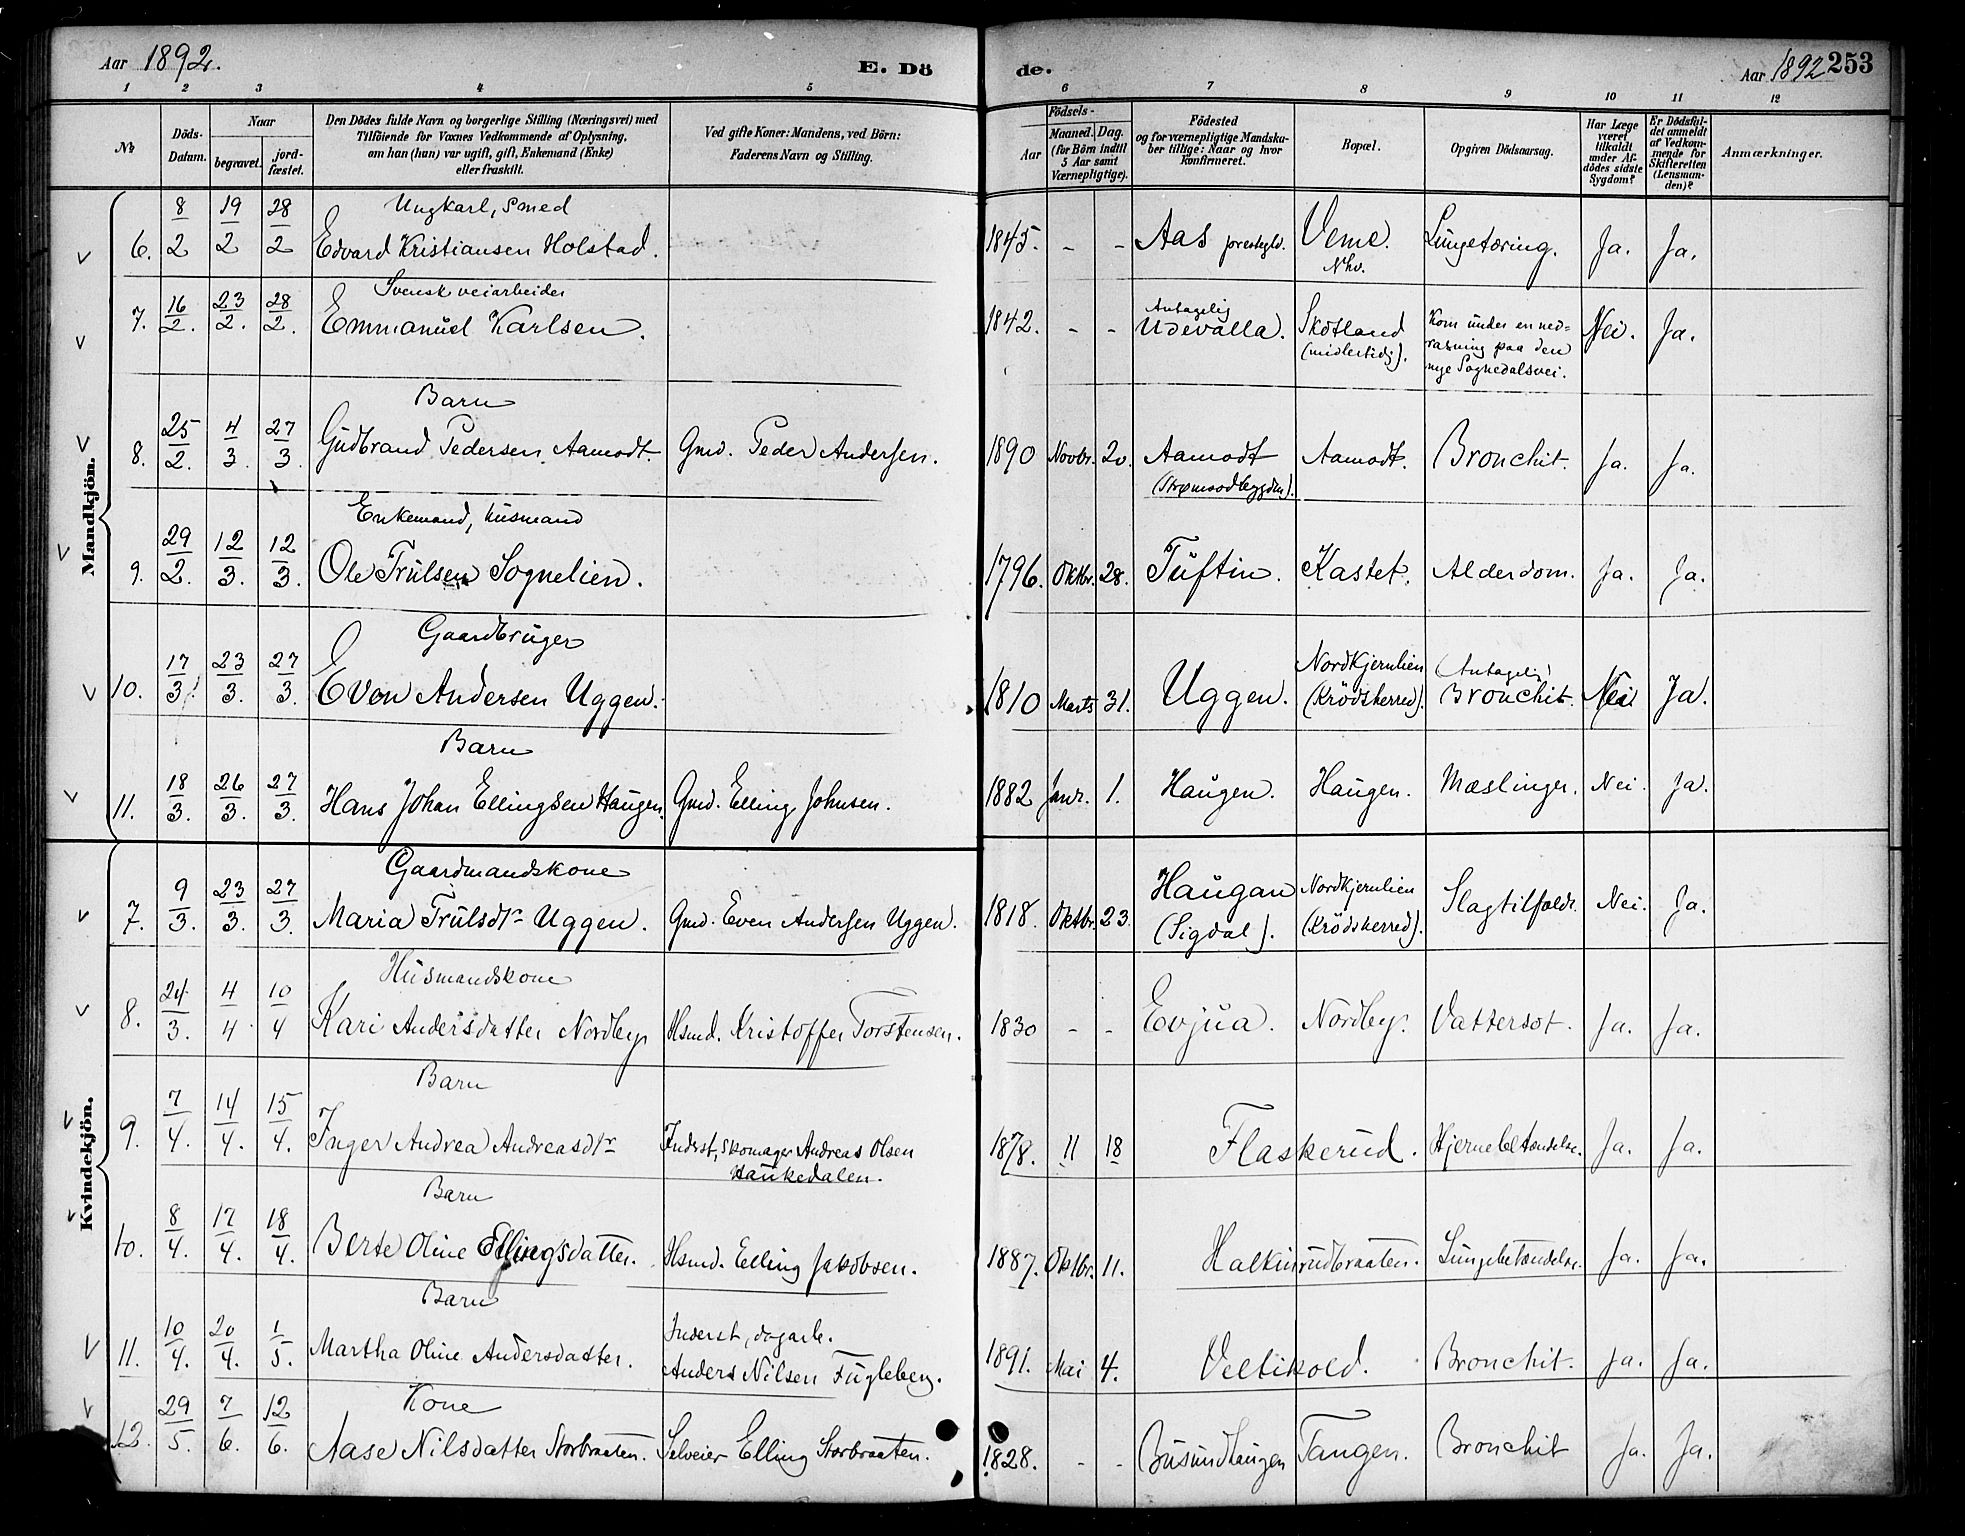 Aar 1892.
E. Dö
de.
Aar 1892 253
1 2 3 4 5 6 7 8 9 10 11 12
No
Döds-
Datum.
Naar
begravet.
jord-
fæstet.
Den Dödes fulde Navn og borgerlige Stilling (Næringsvei) med
Tilföiende for Voxnes Vedkommende af Oplysning,
om han (hun) var ugift, gift, Enkemand (Enke)
eller fraskilt.
Ved gifte Koner: Mandens, ved Börn:
Faderens Navn og Stilling.
Födsels-
Aar
Maaned.
Dag.
(for Börn indtil
5 Aar samt
Værnepligtige).
Födested
og for værnepligtige Mandska-
ber tillige: Naar og hvor
Konfirmeret.
Bopæl.
Opgiven Dödsaarsag.
Har Læge
været
tilkaldt
under Af-
dödes sidste
Sygdom?
Er Dödsfal-
det anmeldt
af Vedkom-
mende for
Skifteretten
(Lensman-
den)?
Anmærkninger.
Mandkjön.
Ungkarl, Smed
6. 8/2 19/2 28/2 Edvard Kristiansen Holstad. 1845. - - Aas prestegld. Veme. Lungetæring. Ja. Ja.
Nhv.
Svensk veiarbeider
7. 16/2. 23/2. 28/2. Emmanuel Karlsen. 1842. - - Antagelig Udevalla. Skotland Kom under en ned= Nei. Ja.
(midlertidig). rasning paa den
nye Sognedalsvei.
Barn
8. 25/2. 4/3. 27/3. Gudbrand Pedersen Aamodt. Gmd. Peder Andersen. 1890 Novbr. 20. Aamodt Aamodt. Bronchit. Ja. Ja.
(Strømsodbygden).
Enkemand, husmand
9. 29/2. 12/3. 12/3. Ole Trulsen Sognelien. 1796. Oktbr. 28. Tuftin. Kastet. Alderdom. Ja. Ja.
Gaardbruger
10. 17/3. 23/3. 27/3. Even Andersen Uggen. 1810 Marts 31. Uggen. Nordkjernlien (Antagelig) Nei Ja.
(Krödsherred). Bronchit.
Barn
11. 18/3. 26/3. 27/3. Hans Johan Ellingsen Haugen. Gmd. Elling Johnsen. 1882 Janr. 1. Haugen. Haugen. Mæslinger. Nei. Ja.
Kvindekjön.
Gaardmandskone
7. 9/3. 23/3. 27/3. Maria Trulsdtr Uggen. Gmd. Even Andersen Uggen. 1818. Oktbr. 23. Haugan Nordkjernlien Slagtilfælde. Nei. Ja.
(Sigdal). (Krödsherred).
Husmandskone
8. 24/3. 4/4. 10/4 Kari Andersdatter Nordby. Hsmd. Kristoffer Torstensen. 1830 - - Evjua. Nordby. Vattersot. Ja. Ja.
Barn
9. 7/4. 14/4. 15/4. Inger Andrea Andreasdtr Inderst, skomager Andreas Olsen 1878. 11 18 Flaskerud. Hjernebetændelse. Ja. Ja.
Haukedalen.
Barn
10. 8/4. 17/4. 18/4. Berte Oline Ellingsdatter. Hsmd. Elling Jakobsen. 1887. Oktbr. 11. Halkinrudbraaten. Lungebetændelse. Ja. Ja.
Barn
11. 10/4. 20/4. 1/5. Martha Oline Andersdatter. Inderst, dagarb. 1891. Mai 4. Veltikold. Bronchit. Ja. Ja.
Anders Nilsen Fugleberg.
Kone
12. 29/5. 7/6. 12/6. Aase Nilsdatter Storbraaten. Selveier Elling Storbraaten. 1828. - - Busundhaugen Tangen. Bronchit Ja. Ja.